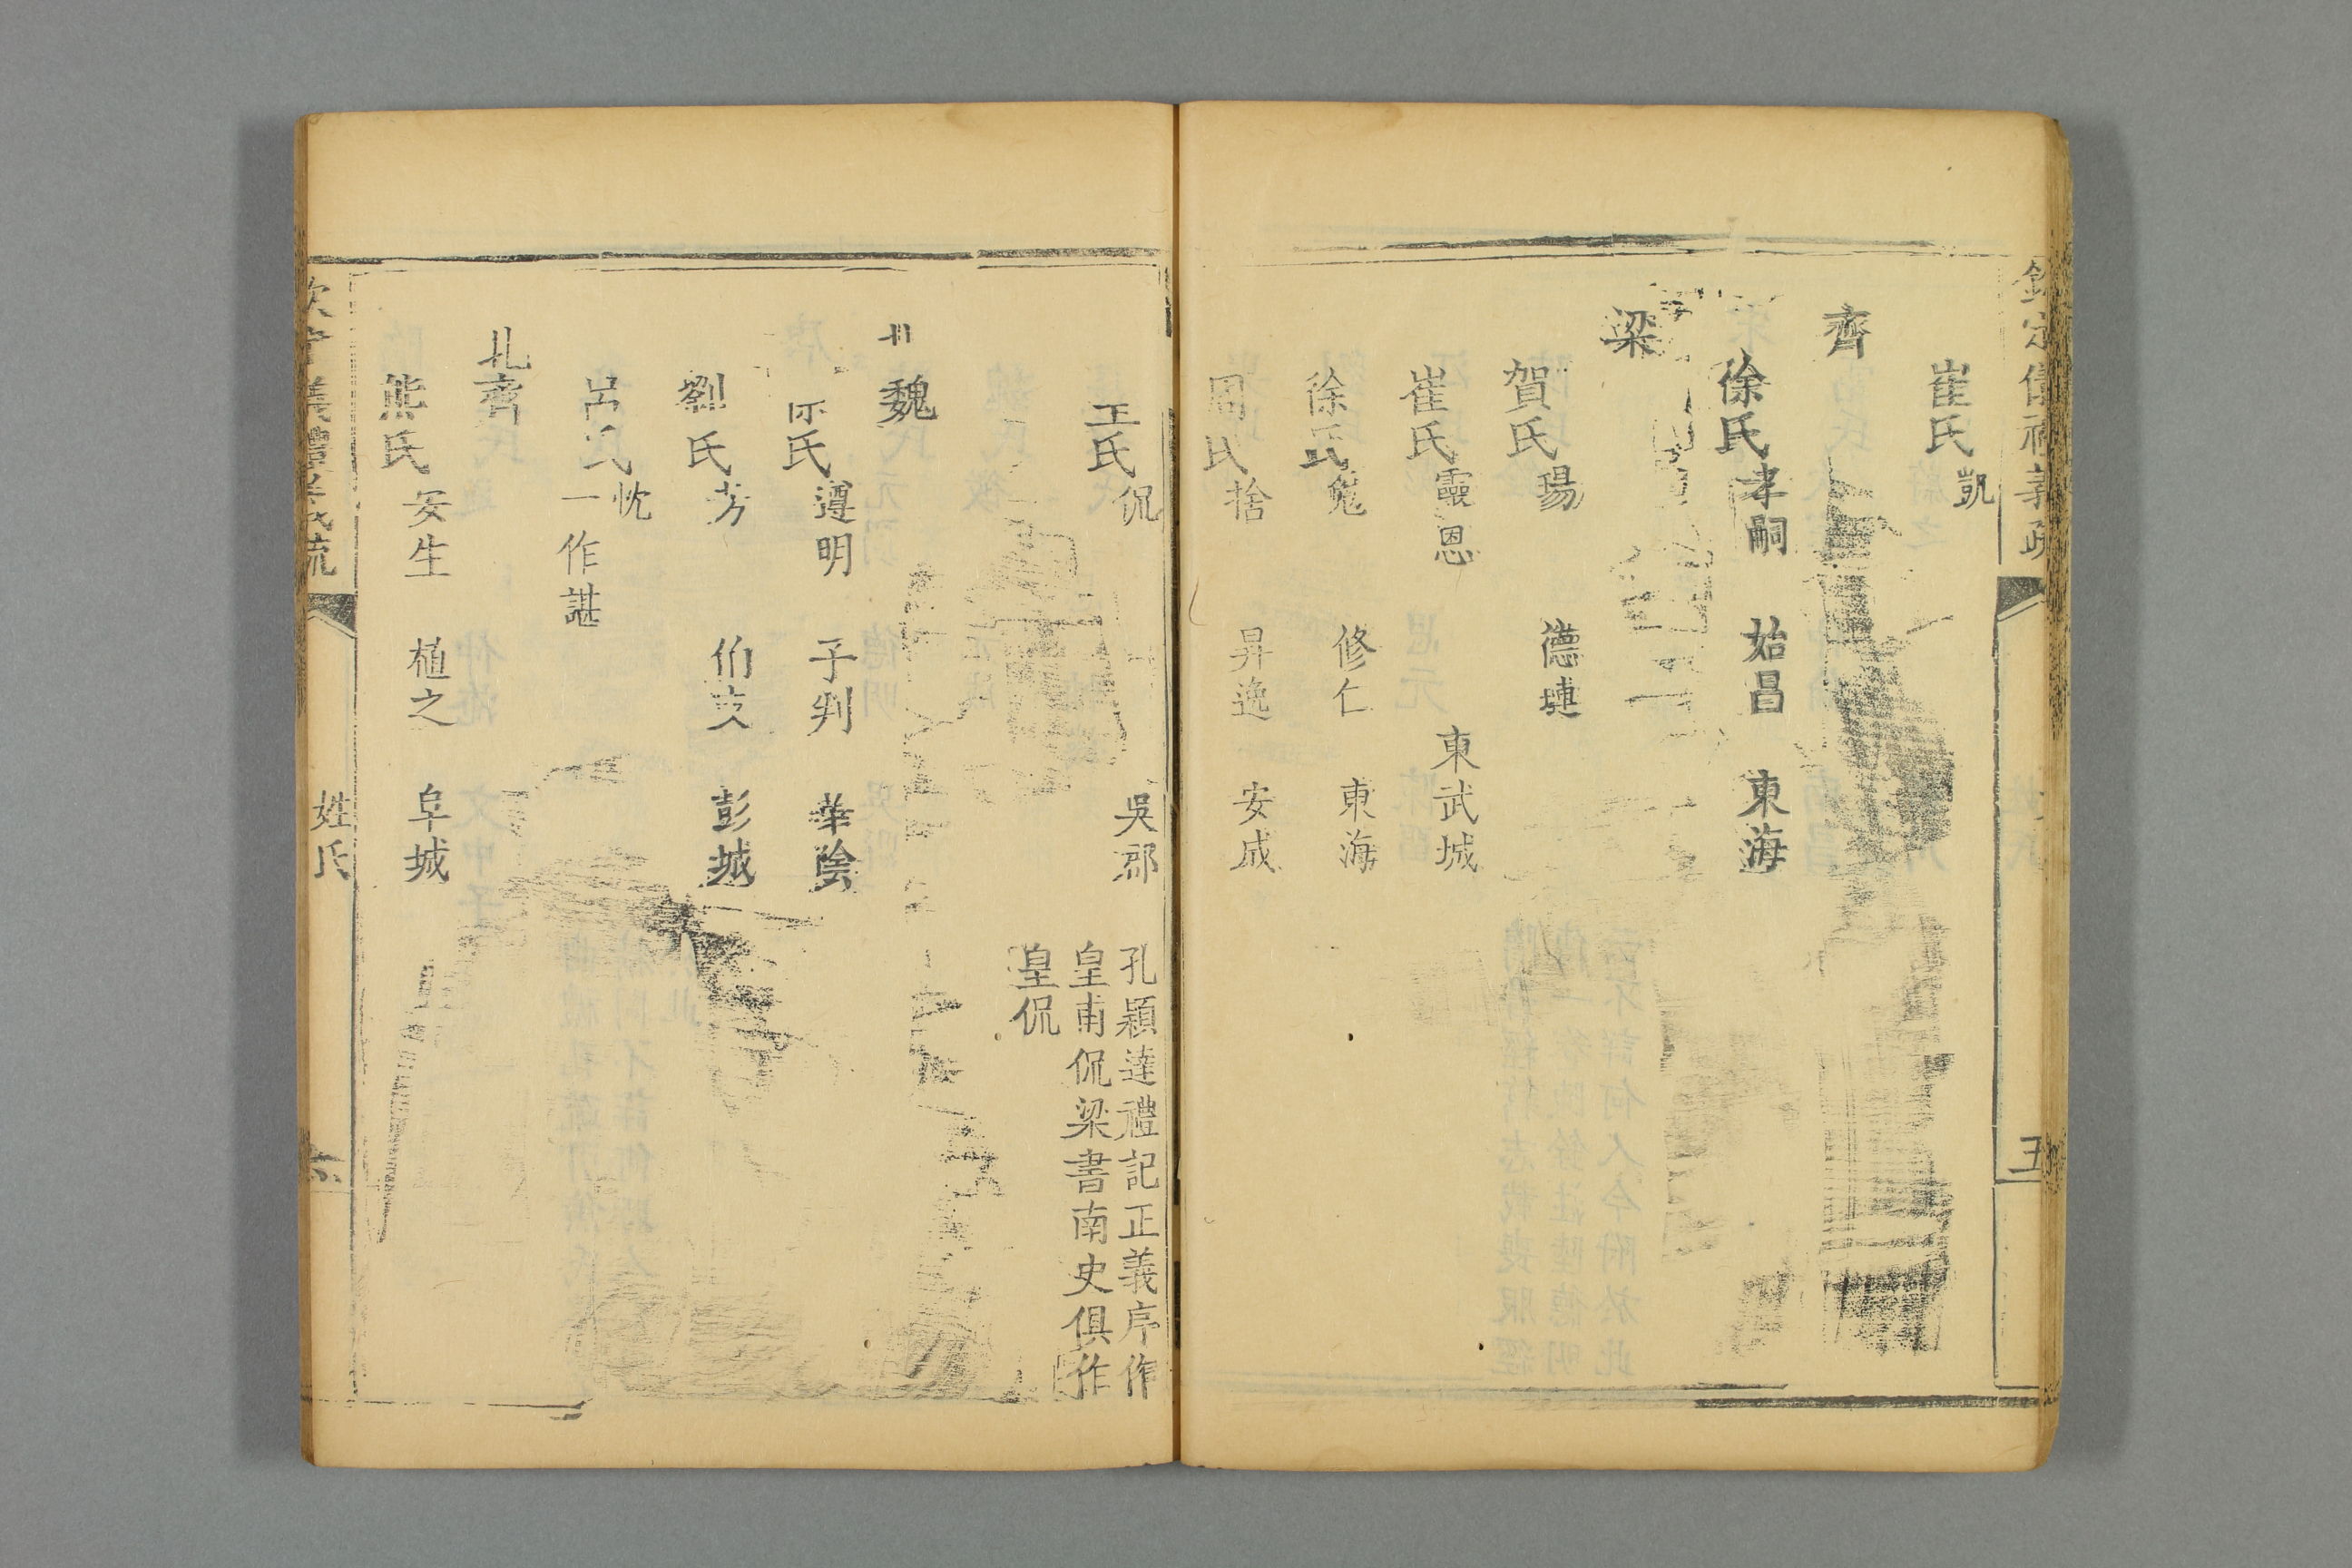 欽定儀禮義疏
五
崔氏 凱
齊
徐氏 孝嗣 始昌 東海
梁
賀氏 瑒 德璉
崔氏 靈恩 東武城
徐氏 修仁 東海
周氏 捨 昇逸 安成
王氏 侃 吳郡 孔穎達禮記正義序作
皇甫侃梁書南史俱作
皇侃
魏
氏 遵明 子判 華陰
劉氏 芳 伯支 彭城
呂氏 忱
一作諶
北齊
熊氏 安生 植之 阜城
欽定儀禮義疏
姓氏